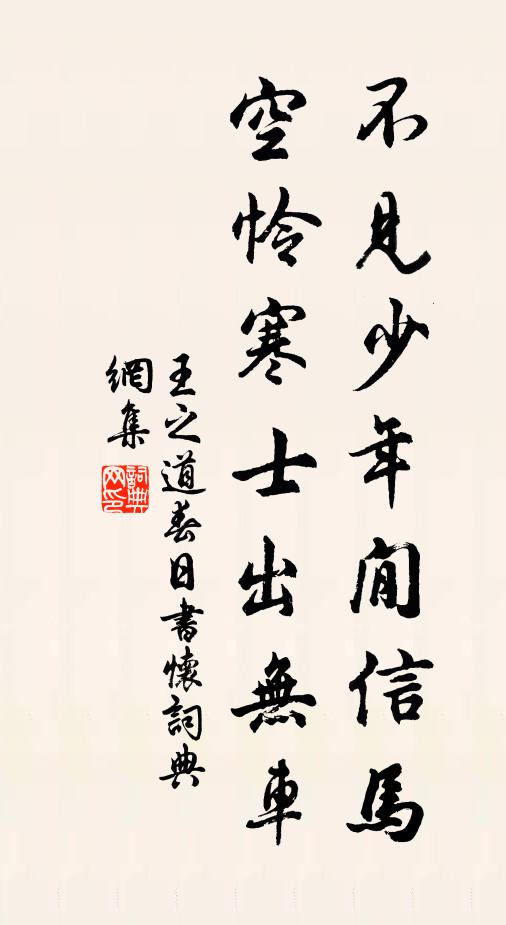 不見少年閒信馬
空怜寒士出無車
王之道春日書懷詞典
網集
詞典
网印